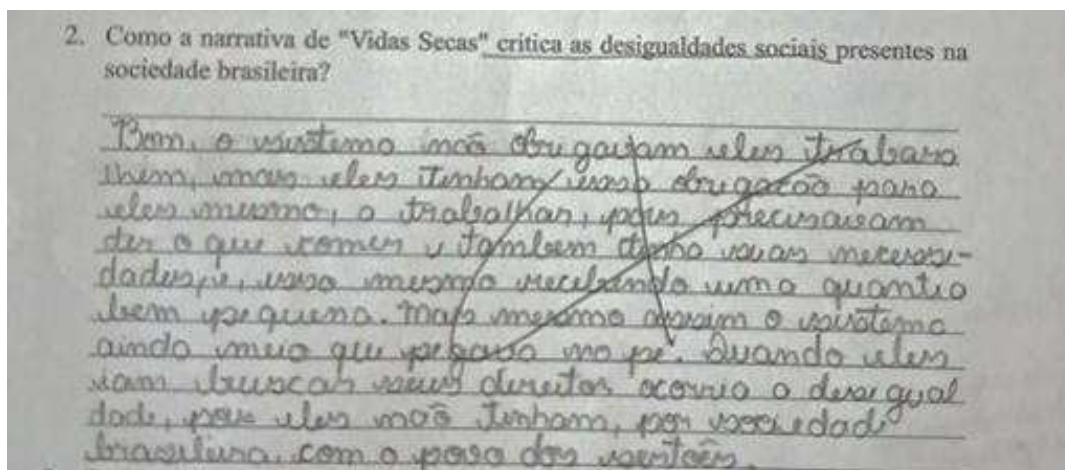 2. Como a narrativa de "Vidas Secas" critica as desigualdades sociais presentes na
sociedade brasileira?
Bom, o sistema não obrigavam eles trabana
lhem, mais eles tinham essa obrigação para
eles mesmo, a trabalhar, pois precisavam
ter o que comer e também tinha suas necessi-
dades, e, isso mesmo recebendo uma quantia
bem pequena. Mais mesmo assim o sistema
ainda meio que pegava no pé. Quando eles
iam buscar seus direitos ocorria a desigual
dade, pois eles não tinham, por sociedade
brasileira, com o povo dos sertões.